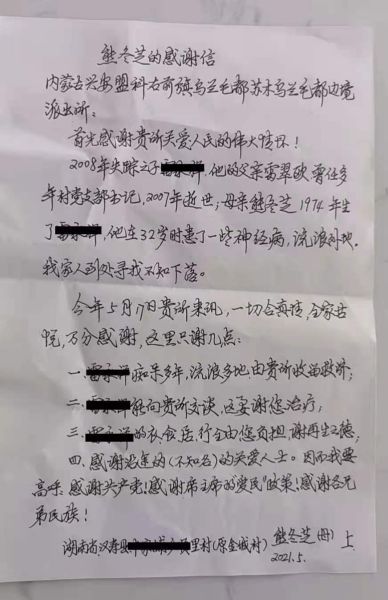 熊冬芝的感谢信
内蒙古兴安盟科右前旗乌兰毛都苏木乌兰毛都边境
派出所:
首先感谢贵所关爱人民的伟大情怀!
2008年失踪之子 他的父亲雷翠欧,曾任多
年村党支部书记,2007年逝世;母亲熊冬芝1974年生
了 他在32岁时患了一些神经病,流浪外地。
我家人到处寻找不知下落。
今年5月17日贵所来讯,一切合真情,全家古
怪,万分感谢,这里只谢几点:
一. 痴呆多年,流浪多地由贵所收留救济;
二. 能向贵所交谈,这要谢您治疗;
三. 的衣食住,行全由您负担,谢再生之德;
四.感谢沿途的(不知名)的关爱人士。因而我要
高呼,感谢共产党!感谢席主席的爱民"政策!感谢各兄
弟民族!
湖南省汉寿县 里村(原金城村) 熊冬芝(母)上
2021.5.